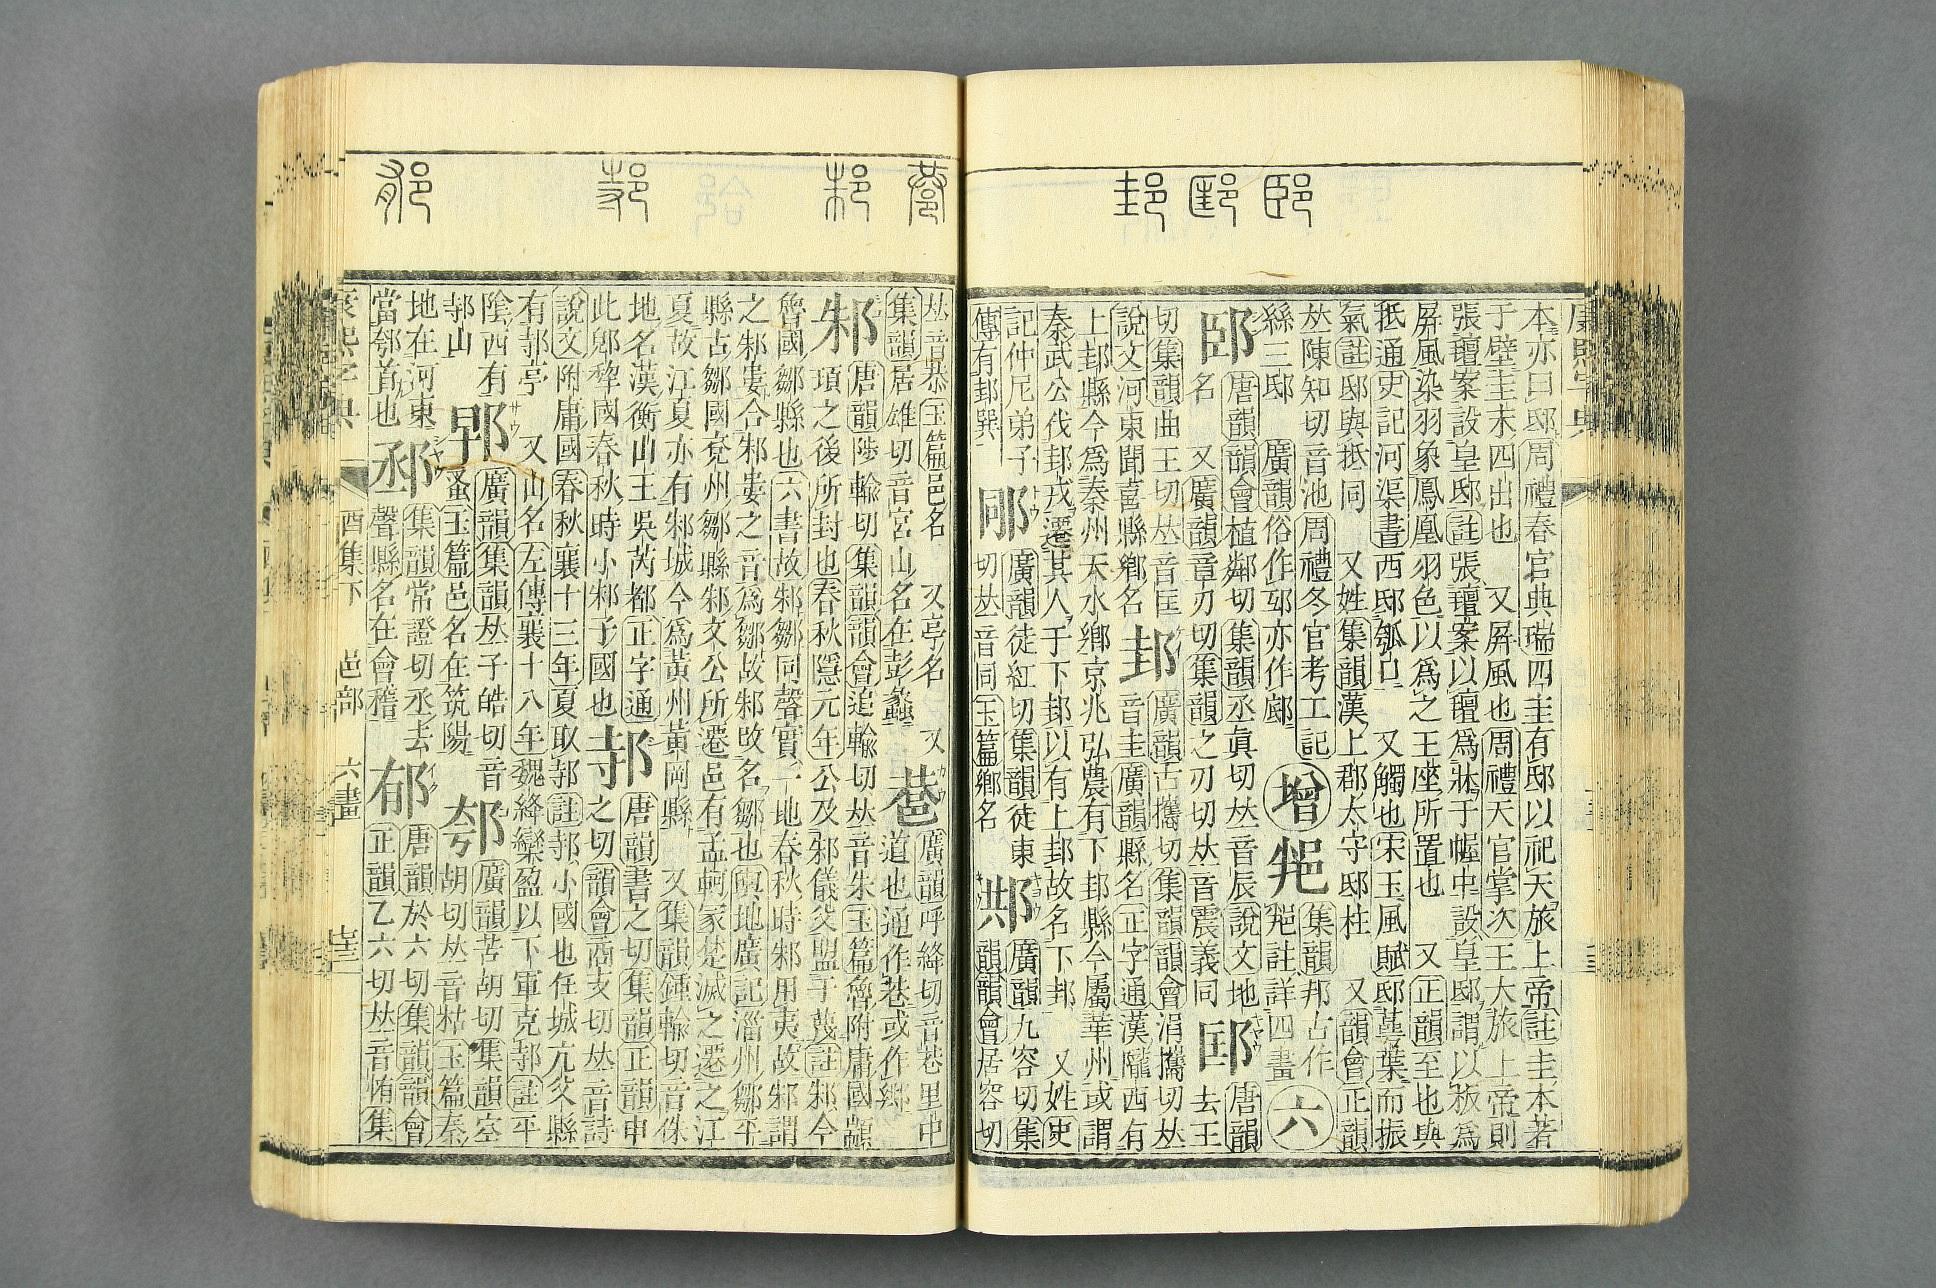 本亦曰邸周禮春官典瑞四圭有邸以祀天旅上帝註圭本著
于璧圭末四出也 又屏風也周禮天官掌次王大旅上帝則
張氊案設皇邸註張氊案以氊爲牀于幄中設皇邸謂以板爲
屏風染羽象鳳凰羽色以爲之王座所置也 又正韻至也與
抵通史記河渠書西邸瓠口 又觸也宋玉風賦邸蕚葉而振
氣註邸與抵同 又姓集韻漢上郡太守邸柱 又韻會正韻
𠀤陳知切音池周禮冬官考工記
絲三邸 廣韻俗作𨑶亦作𨛜
增
郉
集韻邦古作
註詳四畫
六
邼
唐韻韻會植鄰切集韻丞眞切𠀤音辰說文地
名 又廣韻章刃切集韻之刃切𠀤音震義同
邼
唐韻去王
切集韻曲王切𠀤音匡
說文河東聞喜縣鄕名
邽
廣韻古攜切集韻韻會涓攜切𠀤
音圭廣韻縣名正字通漢隴西有
上邽縣今爲秦州天水鄕京兆弘農有下邽縣今屬華州或謂
秦武公伐邽戎遷其人于下邽以有上邽故名下邽 又姓史
記仲尼弟子
傳有邽巽
𨚯
廣韻徒紅切集韻徒東
切𠀤音同玉篇鄕名
𨛱
廣韻九容切集
韻韻會居容切
𠀤音恭玉篇邑名 又亭名 又
集韻居雄切音宮山名在彭蠡
𨛀
廣韻呼絳切音巷里中
道也通作巷或作𨞠
邾
唐韻陟輸切集韻韻會追輸切𠀤音朱玉篇魯附庸國顓
頊之後所封也春秋隱元年公及邾儀父盟于蔑註邾今
魯國鄒縣也六書故邾鄒同聲實一地春秋時邾用夷故邾謂
之邾婁合邾婁之音爲鄒故邾改名鄒也輿地廣記淄州鄒平
縣古鄒國兗州鄒縣邾文公所遷邑有孟軻冢楚滅之遷之江
夏故江夏亦有邾城今爲黃州黃岡縣 又集韻鍾輸切音侏
地名漢衡山王吳芮都正字通
此郳犂國春秋時小邾子國也
邿
唐韻書之切集韻正韻申
之切韻會商支切𠀤音詩
說文附庸國春秋襄十三年夏取邿註邿小國也任城亢父縣
有邿亭 又山名左傳襄十八年魏絳欒盈以下軍克邿註平
隂西有
邿山
郖
廣韻集韻𠀤子皓切音
蚤玉篇邑名在筑陽
𨚱
廣韻苦胡切集韻空
胡切𠀤音枯玉篇秦
地在河東
當瓠首也
𨛉
集韻常證切丞去
聲縣名在會稽
郁
唐韻於六切集韻韻會
正韻乙六切𠀤音栯集
康熙字典
酉集下 邑部 六畫